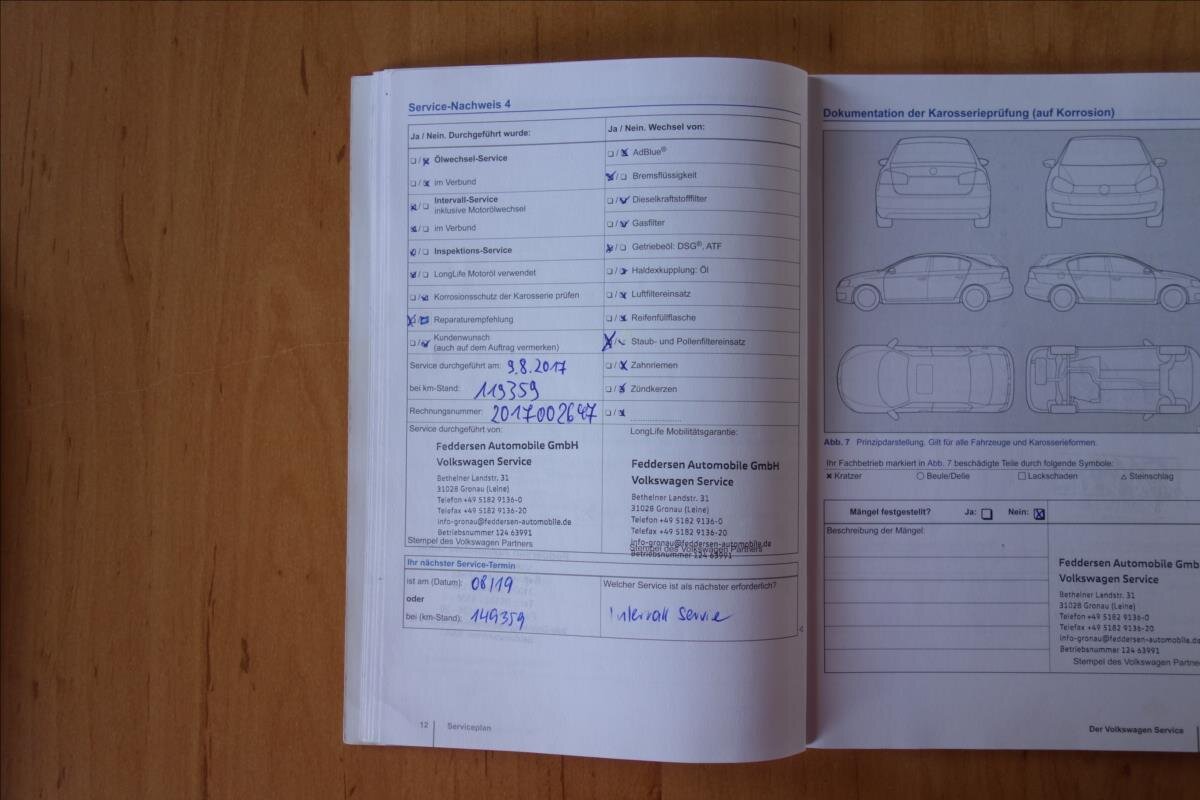 Service-Nachweis 4
Ja / Nein. Durchgeführt wurde:
Ölwechsel-Service
im Verbund
Intervall-Service
inklusive Motorölwechsel
im Verbund
Inspektions-Service
LongLife Motoröl verwendet
Korrosionsschutz der Karosserie prüfen
Reparaturempfehlung
Kundenwunsch
(auch auf dem Auftrag vermerken)
Service durchgeführt am: 9.8.2017
bei km-Stand: 119359
Rechnungsnummer: 2017002647
Ja / Nein. Wechsel von:
AdBlue®
Bremsflüssigkeit
Dieselkraftstofffilter
Gasfilter
Getriebeöl: DSG®, ATF
Haldexkupplung: Öl
Luftfiltereinsatz
Reifenfüllflasche
Staub- und Pollenfiltereinsatz
Zahnriemen
Zündkerzen
Service durchgeführt von:
Feddersen Automobile GmbH
Volkswagen Service
Betheiner Landstr. 31
31028 Gronau (Leine)
Telefon +49 5182 9136-0
Telefax +49 5182 9136-20
info-gronau@feddersen-automobile.de
Betriebsnummer 124 63991
Stempel des Volkswagen Partners
LongLife Mobilitätsgarantie:
Feddersen Automobile GmbH
Volkswagen Service
Betheiner Landstr. 31
31028 Gronau (Leine)
Telefon +49 5182 9136-0
Telefax +49 5182 9136-20
info-gronau@feddersen-automobile.de
Stempel des Volkswagen Partners
Betriebsnummer 124 63991
Ihr nächster Service-Termin
ist am (Datum): 08/19
oder
bei (km-Stand): 149359
Welcher Service ist als nächster erforderlich?
Intervall Service
12 Serviceplan
Dokumentation der Karosserieprüfung (auf Korrosion)
Abb. 7 Prinzipdarstellung. Gilt für alle Fahrzeuge und Karosserieformen.
Ihr Fachbetrieb markiert in Abb. 7 beschädigte Teile durch folgende Symbole:
Kratzer Beule/Delle Lackschaden Steinschlag
Mängel festgestellt? Ja: Nein:
Beschreibung der Mängel:
Feddersen Automobile Gmb
Volkswagen Service
Betheiner Landstr. 31
31028 Gronau (Leine)
Telefon +49 5182 9136-0
Telefax +49 5182 9136-20
info-gronau@feddersen-automobile.de
Betriebsnummer 124 63991
Stempel des Volkswagen Partne
Der Volkswagen Service